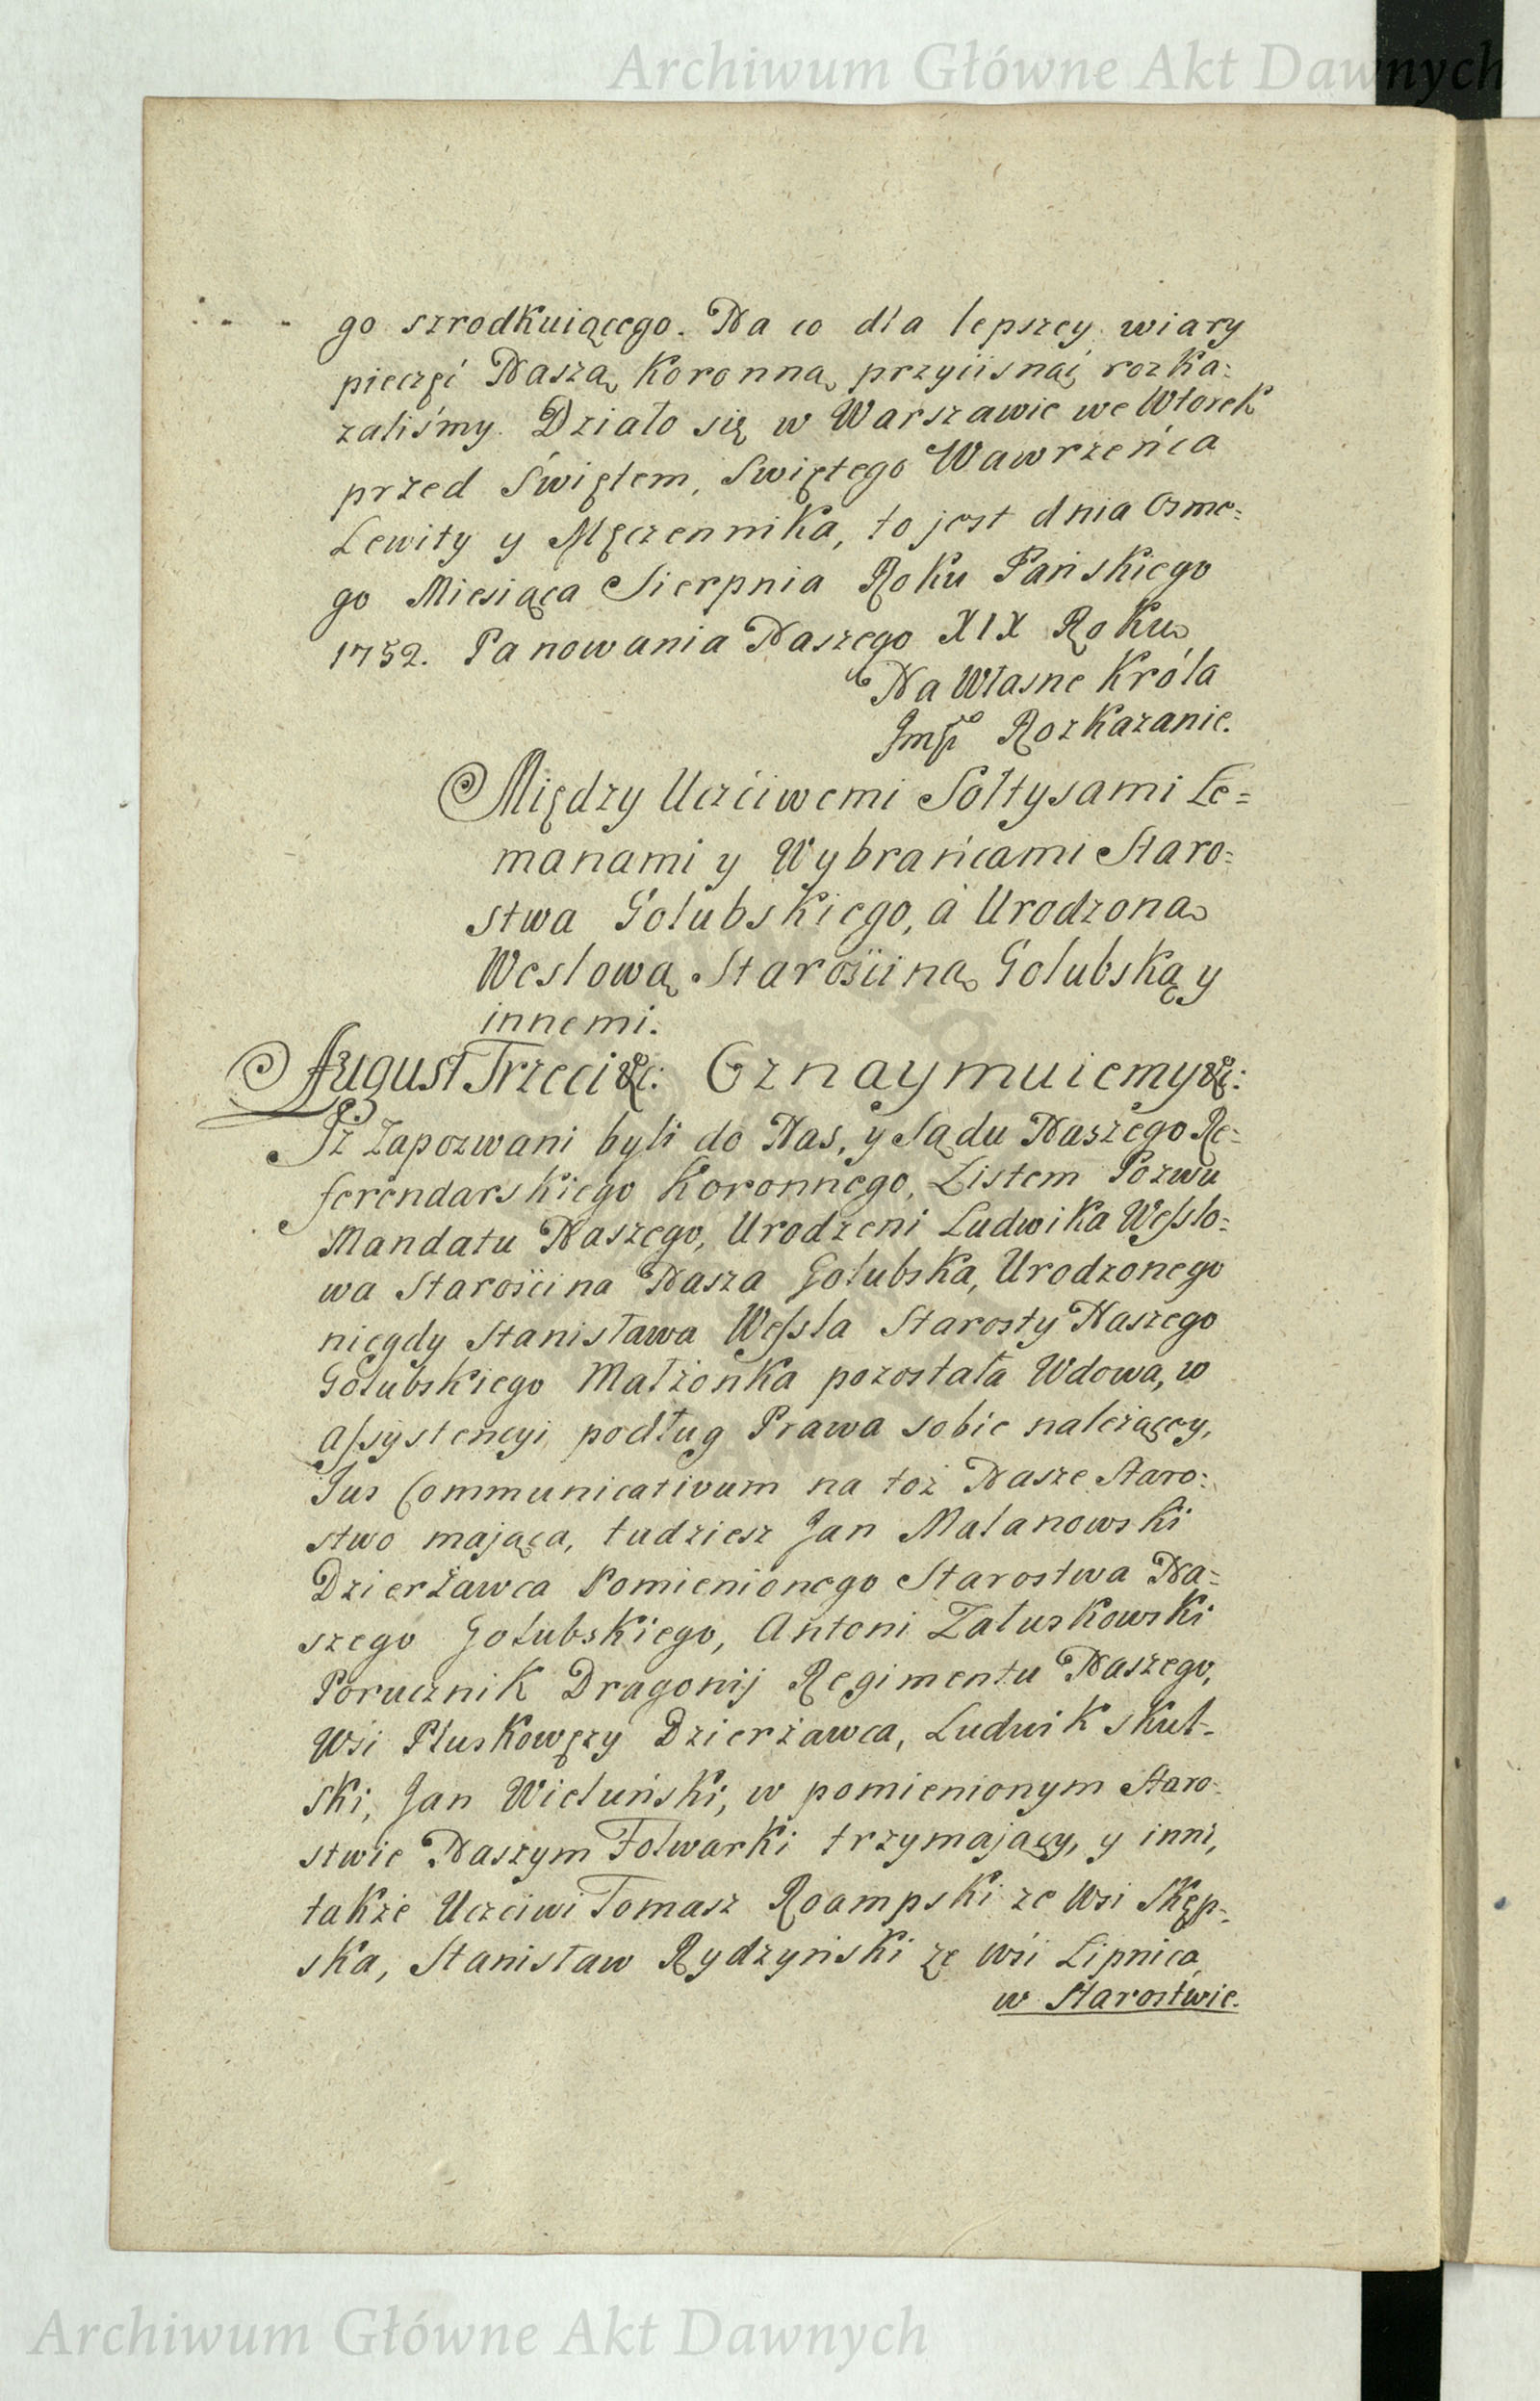 Archiwum Główne Akt Dawnych
go szrodkuiącego. Na co dla lepszey wiary
pieczęć Naszą Koronną przyciisnąć rozka=
zaliśmy. Działo się w Warszawie we Wtorek
przed Świętem, Swiętego Wawrzeńca
Lewity y Męczennika, to jest dnia Osme=
go Miesiąca Sierpnia Roku Pańskiego
1752. Panowania Naszego XIX Roku
Na Własne Króla
Jmści Rozkazanie.
Między Uczciwemi Sołtysami Le=
manami y Wybrańcami Staro=
stwa Golubskiego, á Urodzoną
Weslową Starościną Golubską y
innemi.
August Trzeci &c: Oznaymuiemy &c:
Iż Zapozwani byli do Nas, y Sądu Naszego Re=
ferendarskiego Koronnego, Listem Pozwu
Mandatu Naszego, Urodzeni Ludwika Wesslo=
wa Starościna Nasza Golubska, Urodzonego
niegdy Stanisława Wessla Starosty Naszego
Golubskiego Małżonka pozostała Wdowa, w
Assystencyi podług Prawa sobie należącey,
Jus Communicativum na toż Nasze Staro=
stwo mająca, tudziesz Jan Małanowski
Dzierżawca Pomienionego Starostwa Na=
szego Golubskiego, Antoni Załuskowski
Porucznik Dragonij Regimentu Naszego,
Wsi Pluskowęzy Dzierżawca, Ludwik Skul=
ski, Jan Wieluński, w pomienionym Staro=
stwie Naszym Folwarki trzymający, y inni,
także Uczciwi Tomasz Roampski ze Wsi Skęp=
ska, Stanisław Rydzyński ze Wśi Lipnica
w Starostwie.
Archiwum Główne Akt Dawnych